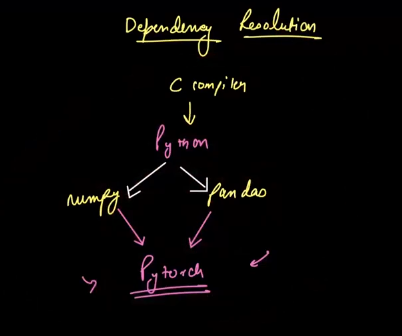 Dependency Resolution
C compiler
Python
numpy pandas
Pytorch